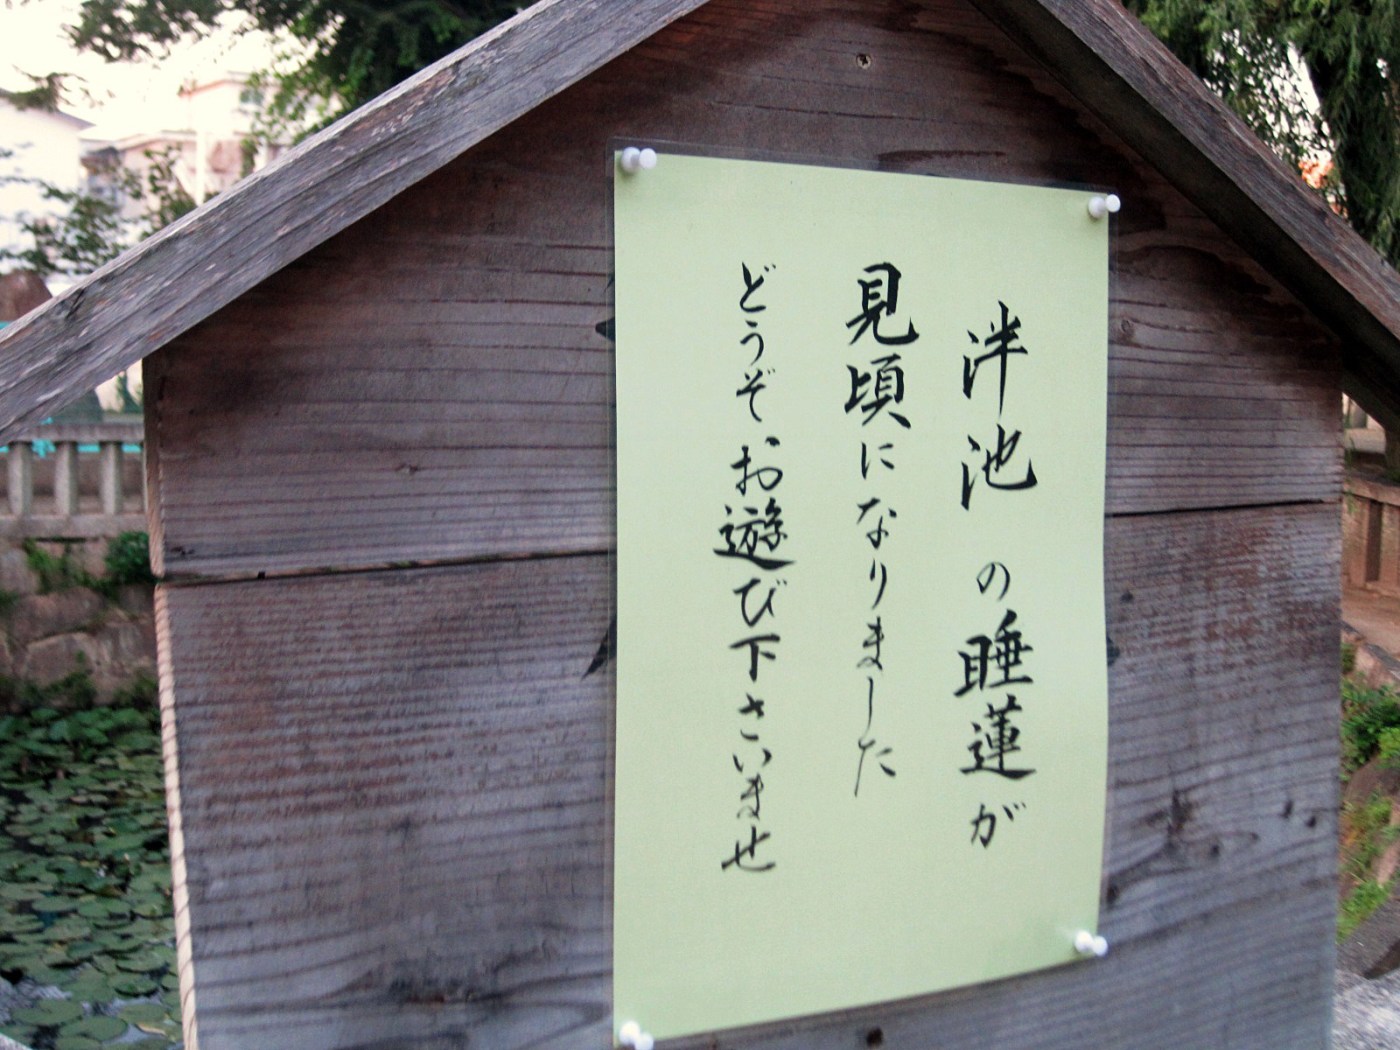 泮池の睡蓮が
見頃になりました
どうぞお遊び下さいませ